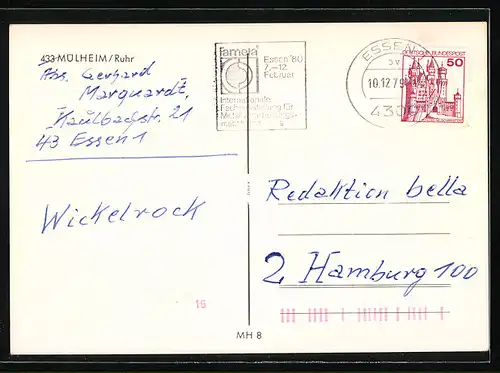 433 MÜLHEIM/Ruhr
Abs. Gerhard
Marquardt,
Kaulbachstr. 21
43 Essen 1
Wickelrock
16
MH 8
fameta
Essen '80
7.–12.
Februar
Internationale
ESSEN
10.12.79
4300
DEUTSCHE BUNDESPOST
50
Redaktion bella
2 Hamburg 100